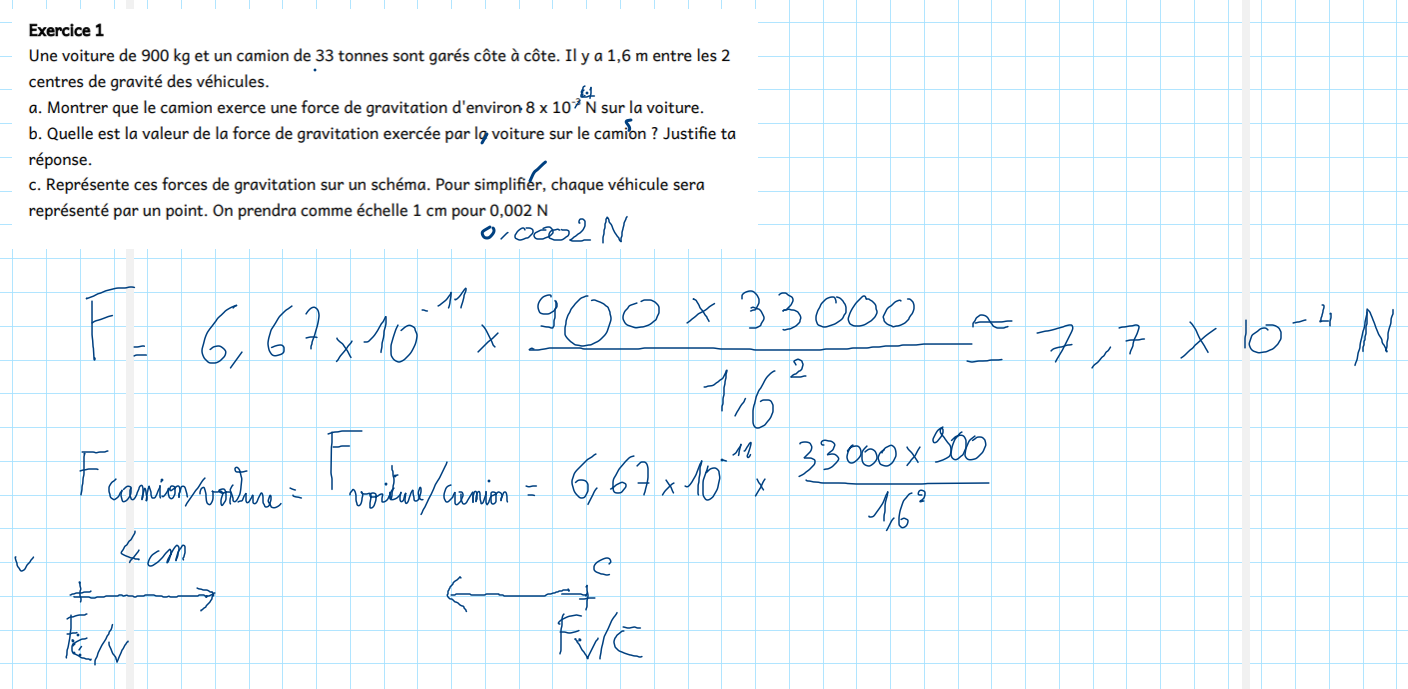 Exercice 1
Une voiture de 900 kg et un camion de 33 tonnes sont garés côte à côte. Il y a 1,6 m entre les 2
centres de gravité des véhicules.
a. Montrer que le camion exerce une force de gravitation d'environ 8 x 10⁻⁴ N sur la voiture.
b. Quelle est la valeur de la force de gravitation exercée par la voiture sur le camion ? Justifie ta
réponse.
c. Représente ces forces de gravitation sur un schéma. Pour simplifier, chaque véhicule sera
représenté par un point. On prendra comme échelle 1 cm pour 0,002 N
0,0002 N
F = 6,67 × 10⁻¹¹ × 900 × 33000 / 1,6² ≃ 7,7 × 10⁻⁴ N
F camion/voiture = F voiture/camion = 6,67 × 10⁻¹¹ × 33000 × 900 / 1,6²
V 4 cm C
F C/V F V/C